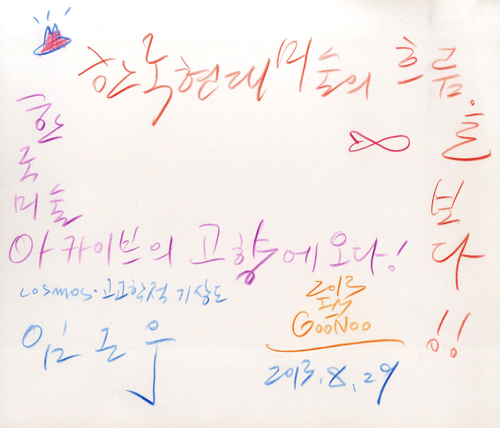 한국현대미술의 흐름을 보다!!
한국미술
아카이브의 고향에 오다!
cosmos·고고학적 기상도
임근우
2013
GooNoo
2013.8.29